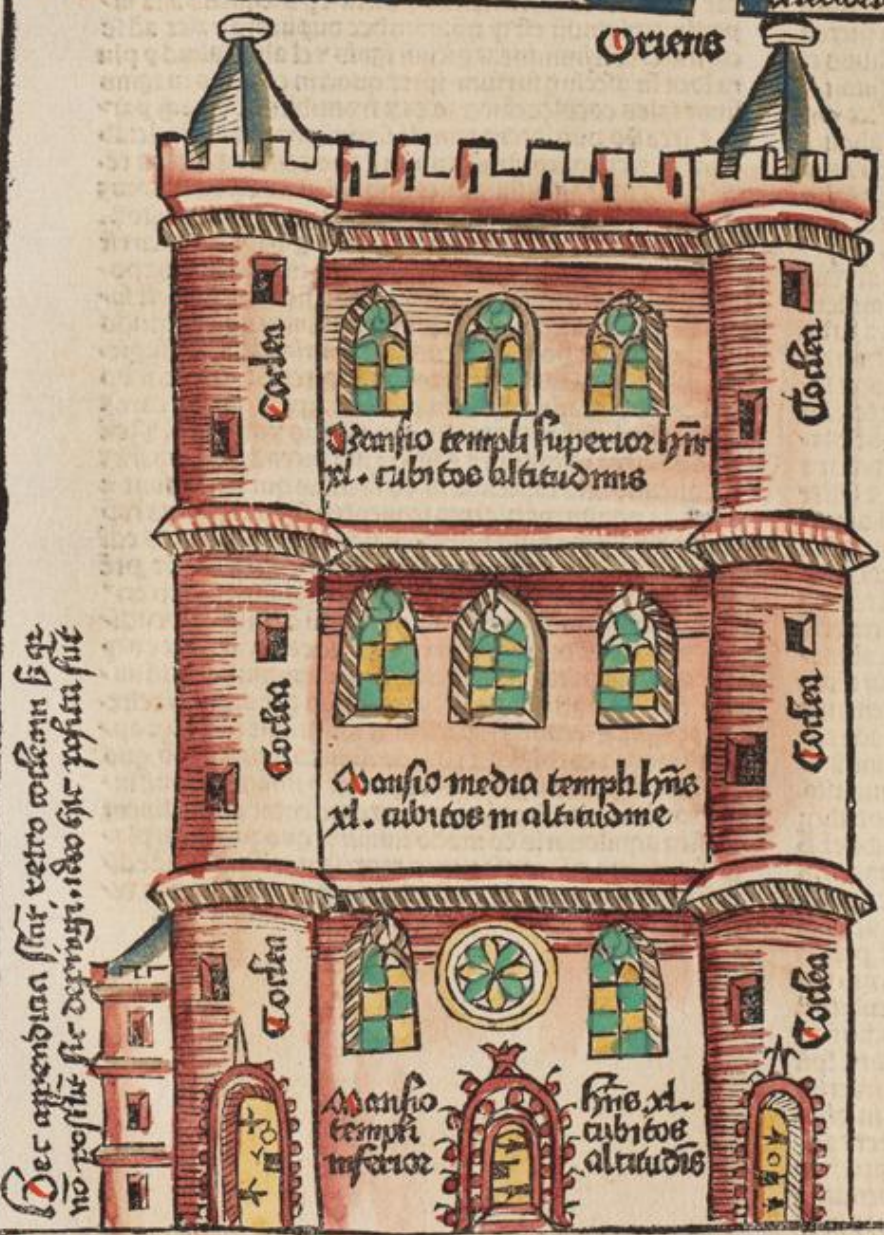 Oriens
Coclea
Coclea
Mansio templi superior hn̄s
xl. cubitos altitudinis
Coclea
Coclea
Mansio media templi hn̄s
xl. cubitos in altitudine
Coclea
Coclea
Mansio
templi
inferior
hn̄s xl.
cubitos
altitudīs
Hec appendicia retro
nō hic